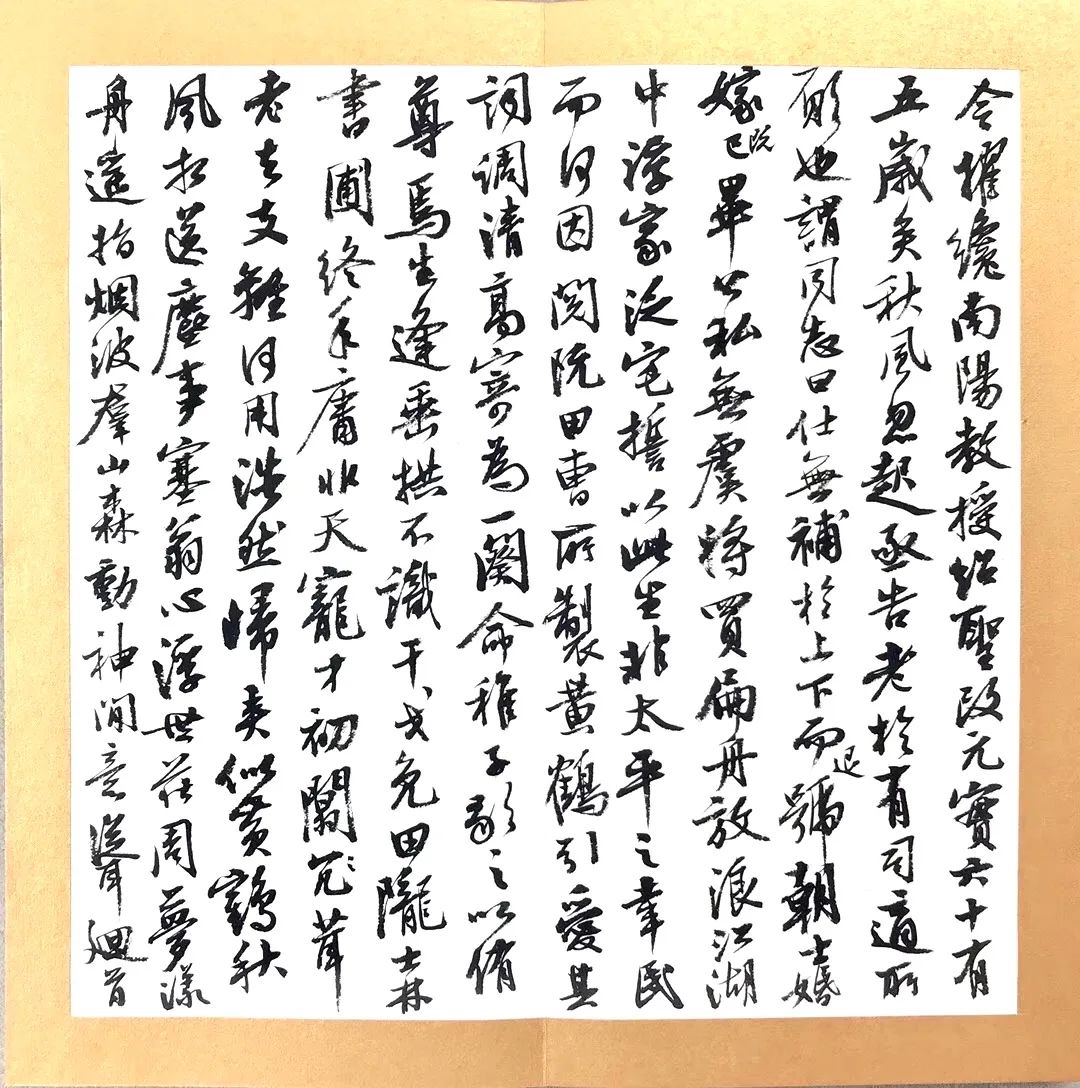 令擢纔南陽教授紹聖改元實六十有
五歲矣秋風忽起亟告老於有司適所
願也謂同志曰仕無補於上下而退號朝士婚
嫁既已畢公私無虞將買偏舟放浪江湖
中浮家泛宅誓以此生非太平之幸民
而何因閲阮田曹所製黄鶴引愛其
詞調清高寄為一闋命稚子歌之以侑
尊焉生逢垂拱不識干戈免田隴士林
書圃終年庸非天寵才初闒冗茸
老去支離何用浩然歸弄似黄鶴秋
風相送塵事塞翁心浮世莊周夢漾
舟遥指烟波羣山森動神閒意聳迴首